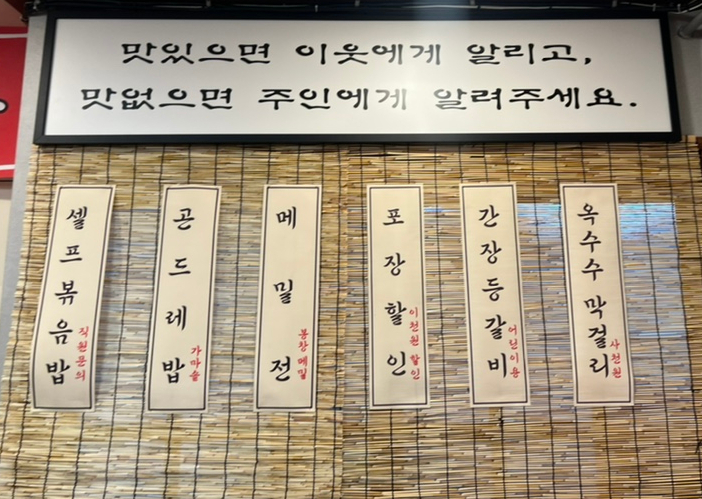 맛있으면 이웃에게 알리고,
맛없으면 주인에게 알려주세요.
셀프볶음밥
직원문의
곤드레밥
가마솥
메밀전
봉창메밀
포장할인
이천원할인
간장등갈비
어린이용
옥수수막걸리
사천원